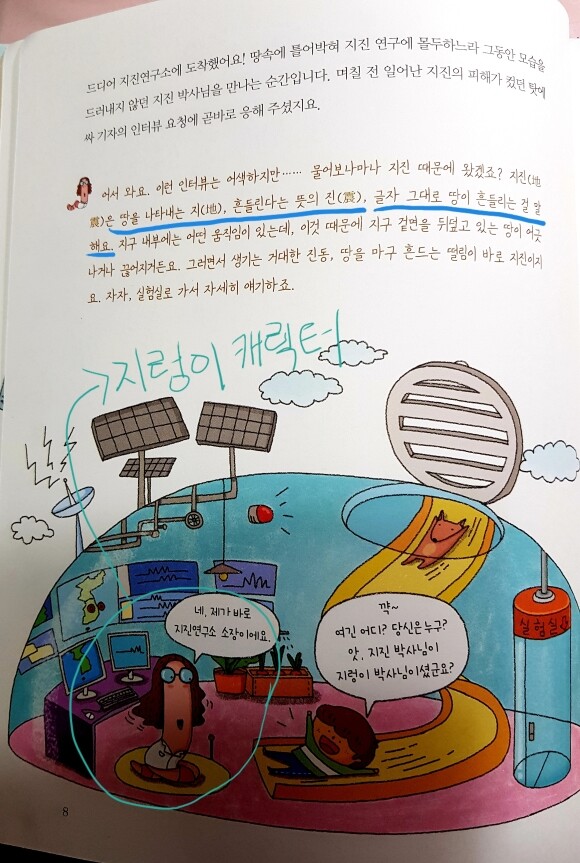 드디어 지진연구소에 도착했어요! 땅속에 틀어박혀 지진 연구에 몰두하느라 그동안 모습을
드러내지 않던 지진 박사님을 만나는 순간입니다. 며칠 전 일어난 지진의 피해가 컸던 탓에
싸 기자의 인터뷰 요청에 곧바로 응해 주셨지요.
어서 와요. 이런 인터뷰는 어색하지만…… 물어보나마나 지진 때문에 왔겠죠? 지진(地
震)은 땅을 나타내는 지(地), 흔들린다는 뜻의 진(震), 글자 그대로 땅이 흔들리는 걸 말
해요. 지구 내부에는 어떤 움직임이 있는데, 이것 때문에 지구 겉면을 뒤덮고 있는 땅이 어긋
나거나 끊어지거든요. 그러면서 생기는 거대한 진동, 땅을 마구 흔드는 떨림이 바로 지진이지
요. 자자, 실험실로 가서 자세히 얘기하죠.
지렁이 캐릭터
네, 제가 바로
지진연구소 소장이에요.
꺅~
여긴 어디? 당신은 누구?
앗, 지진 박사님이
지렁이 박사님이셨군요?
실험실
8